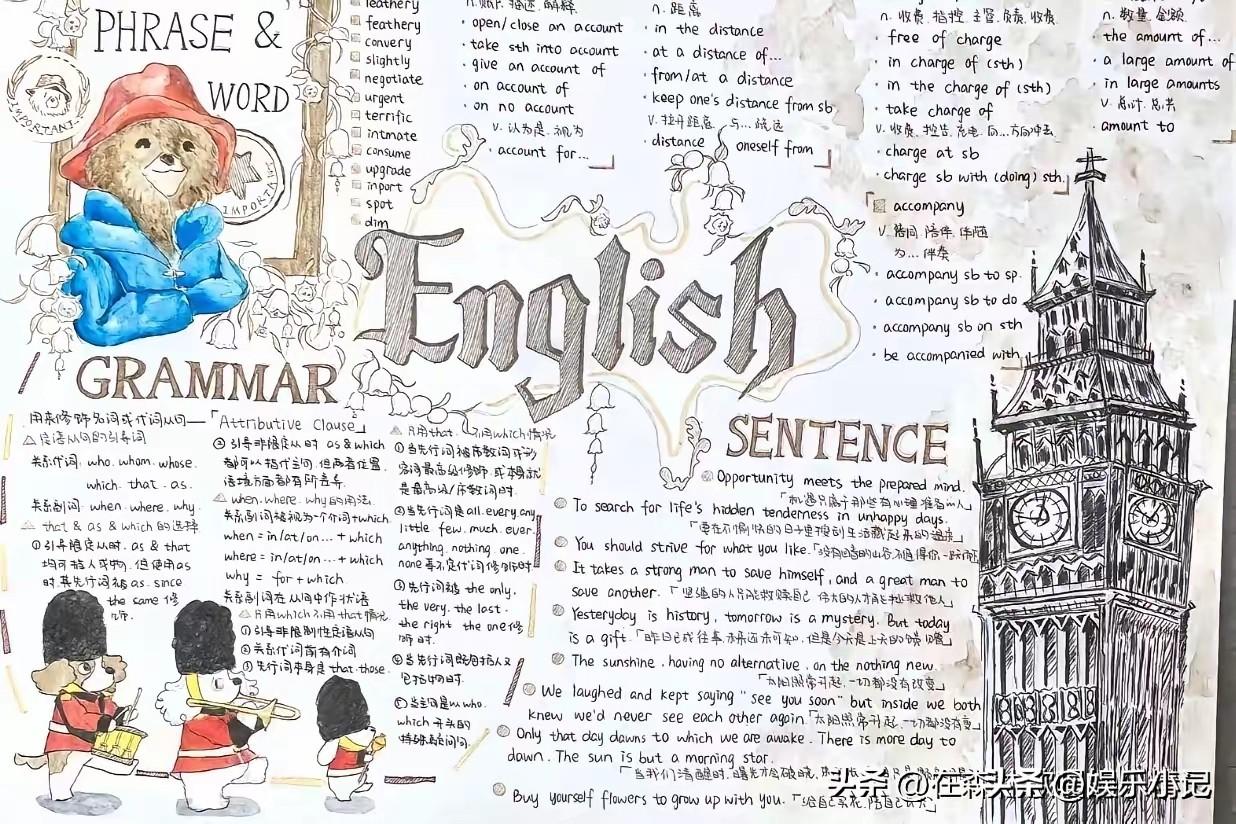 PHRASE &
WORD
IMPORTANT
leathery
feathery
convery
slightly
negotiate
urgent
terrific
intmate
consume
upgrade
inport
spot
dim
n. 账户. 描述. 解释
· open/close an account
· take sth into account
· give an account of
· on account of
· on no account
v. 认为是. 视为
· account for...
n. 距离
· in the distance
· at a distance of...
· from/at a distance
· keep one's distance from sb
v. 拉开距离. 与... 疏远
· distance oneself from
n. 收费. 指控. 主管. 负责. 收费
· free of charge
· in charge of (sth)
· in the charge of (sth)
· take charge of
v. 收费. 控告. 充电. 向...方向冲去
· charge at sb
· charge sb with (doing) sth.
n. 数量. 金额
· the amount of...
· a large amount of
· in large amounts
v. 总计. 总共
· amount to
accompany
v. 陪同. 陪伴. 伴随
为... 伴奏
· accompany sb to sp.
· accompany sb to do
· accompany sb on sth
· be accompanied with
English
GRAMMAR
用来修饰名词或代词从句—「Attributive Clause」
△ 定语从句的引导词
关系代词. who. whom. whose.
which. that. as.
关系副词. when. where. why.
△ that & as & which 的选择
①引导限定从时. as & that
均可指人或物. 但使用as
时. 其先行词被as. since
the same 修
饰.
②引导非限定从时 as & which
都可以指代主句. 但两者位置.
语境方面都有所差异
△ when. where. why的用法.
关系副词被视为一个介词+which.
when = in/at/on... + which
where = in/at/on... + which
why = for + which
关系副词在从句中作状语
△ 只用which不用that情况
①引导非限制性定语从句
②关系代词前有介词
③先行词本身是that. those.
△ 只用that. 不用which情况
①当先行词被序数词或形
容词最高级修饰. 或本身就
是最高级/序数词时.
②当先行词是all. every. any
little few. much. ever.
anything. nothing. one.
none等不定代词修饰时
③先行词被 the only.
the very. the last.
the right the one修
饰时.
④当先行词既有指人又
包括物时.
⑤当主句是以who.
which 开头的
特殊疑问句.
SENTENCE
Opportunity meets the prepared mind.
「机遇只属于那些有心理准备的人」
To search for life's hidden tenderness in unhappy days.
「要在不愉快的日子里搜刮生活藏起来的温柔」
You should strive for what you like.
It takes a strong man to save himself, and a great man to
save another. 「坚强的人只能救赎自己 伟大的人才能拯救他人」
Yesteryday is history, tomorrow is a mystery. But today
is a gift. 「昨日已成往事 未来还未可知. 但是今天是上天的馈赠」
The sunshine. having no alternative. on the nothing new.
「太阳照常升起. 一切都没有改变」
We laughed and kept saying "see you soon" but inside we both
knew we'd never see each other again 「太阳照常升起. 一切都没有变」
Only that day dawns to which we are awake. There is more day to
dawn. The sun is but a morning star.
「当我们清醒时. 曙光才会破晓.
Buy yourself flowers to grow up with you.
头条 @在森头条 @娱乐小记